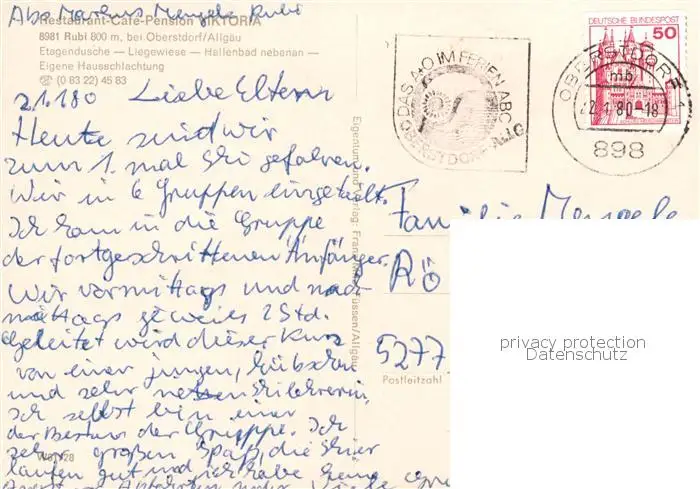 Abs Markus Mengele Rubi
Restaurant-Café-Pension VIKTORIA
8981 Rubi 800 m, bei Oberstdorf/Allgäu
Etagendusche — Liegewiese — Hallenbad nebenan —
Eigene Hausschlachtung
☎ (0 83 22) 45 83
21.1.80 Liebe Eltern
Heute sind wir
zum 1. mal Ski gefahren.
Wir in 6 Gruppen eingeteilt.
Ich kam in die Gruppe
der fortgeschrittenen Anfänger.
Wir vormittags und nach-
mittags jeweils 2 Std.
Geleitet wird dieser Kurs
von einer jungen, hübschen
und sehr netten Skilehrerin.
Ich selbst bin einer
der Besten der Grupppe. Ich
sehr großen Spaß, die Skier
laufen gut und ich habe keine
Angst vor Abfahrten mehr. Viele
Wo 128
Eigentum und Verlag: Franz Füssen/Allgäu
DAS A·O IM FERIEN-ABC
OBERSTDORF ALLG
DEUTSCHE BUNDESPOST
50
OBERSTDORF 1
mb
22.1.80-18
898
Familie Mengele
Rö
5277
Postleitzahl
privacy protection
Datenschutz